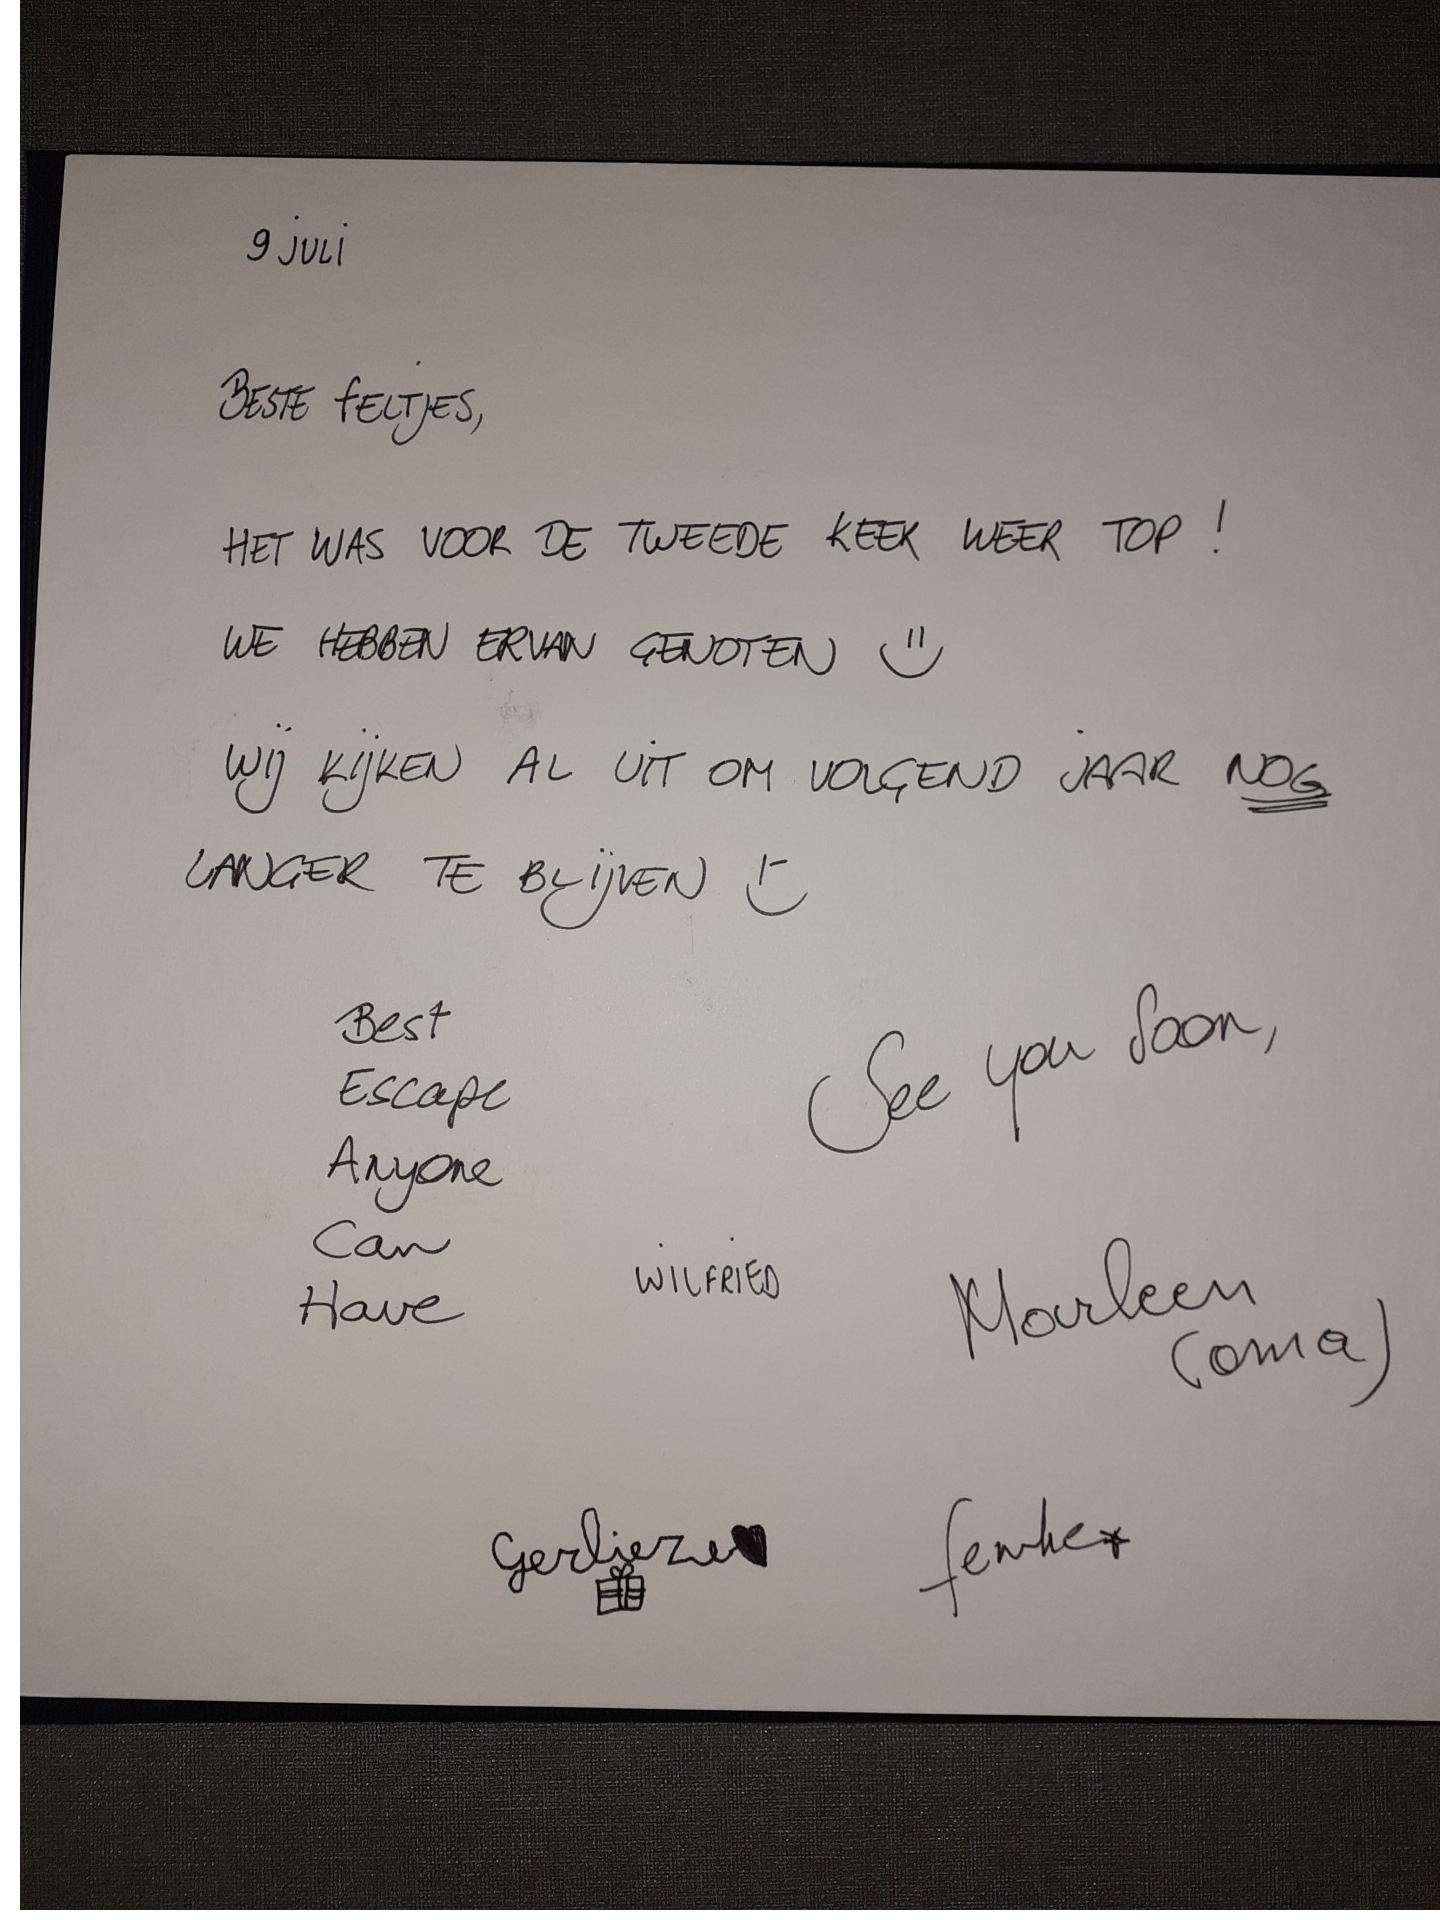 9 JULI
BESTE FELTJES,
HET WAS VOOR DE TWEEDE KEER WEER TOP!
WE HEBBEN ERVAN GENOTEN
WIJ KIJKEN AL UIT OM VOLGEND JAAR NOG
LANGER TE BLIJVEN
Best
Escape
Anyone
Can
Have
See you soon,
WILFRIED
Marleen
(oma)
Gerlieze
femke